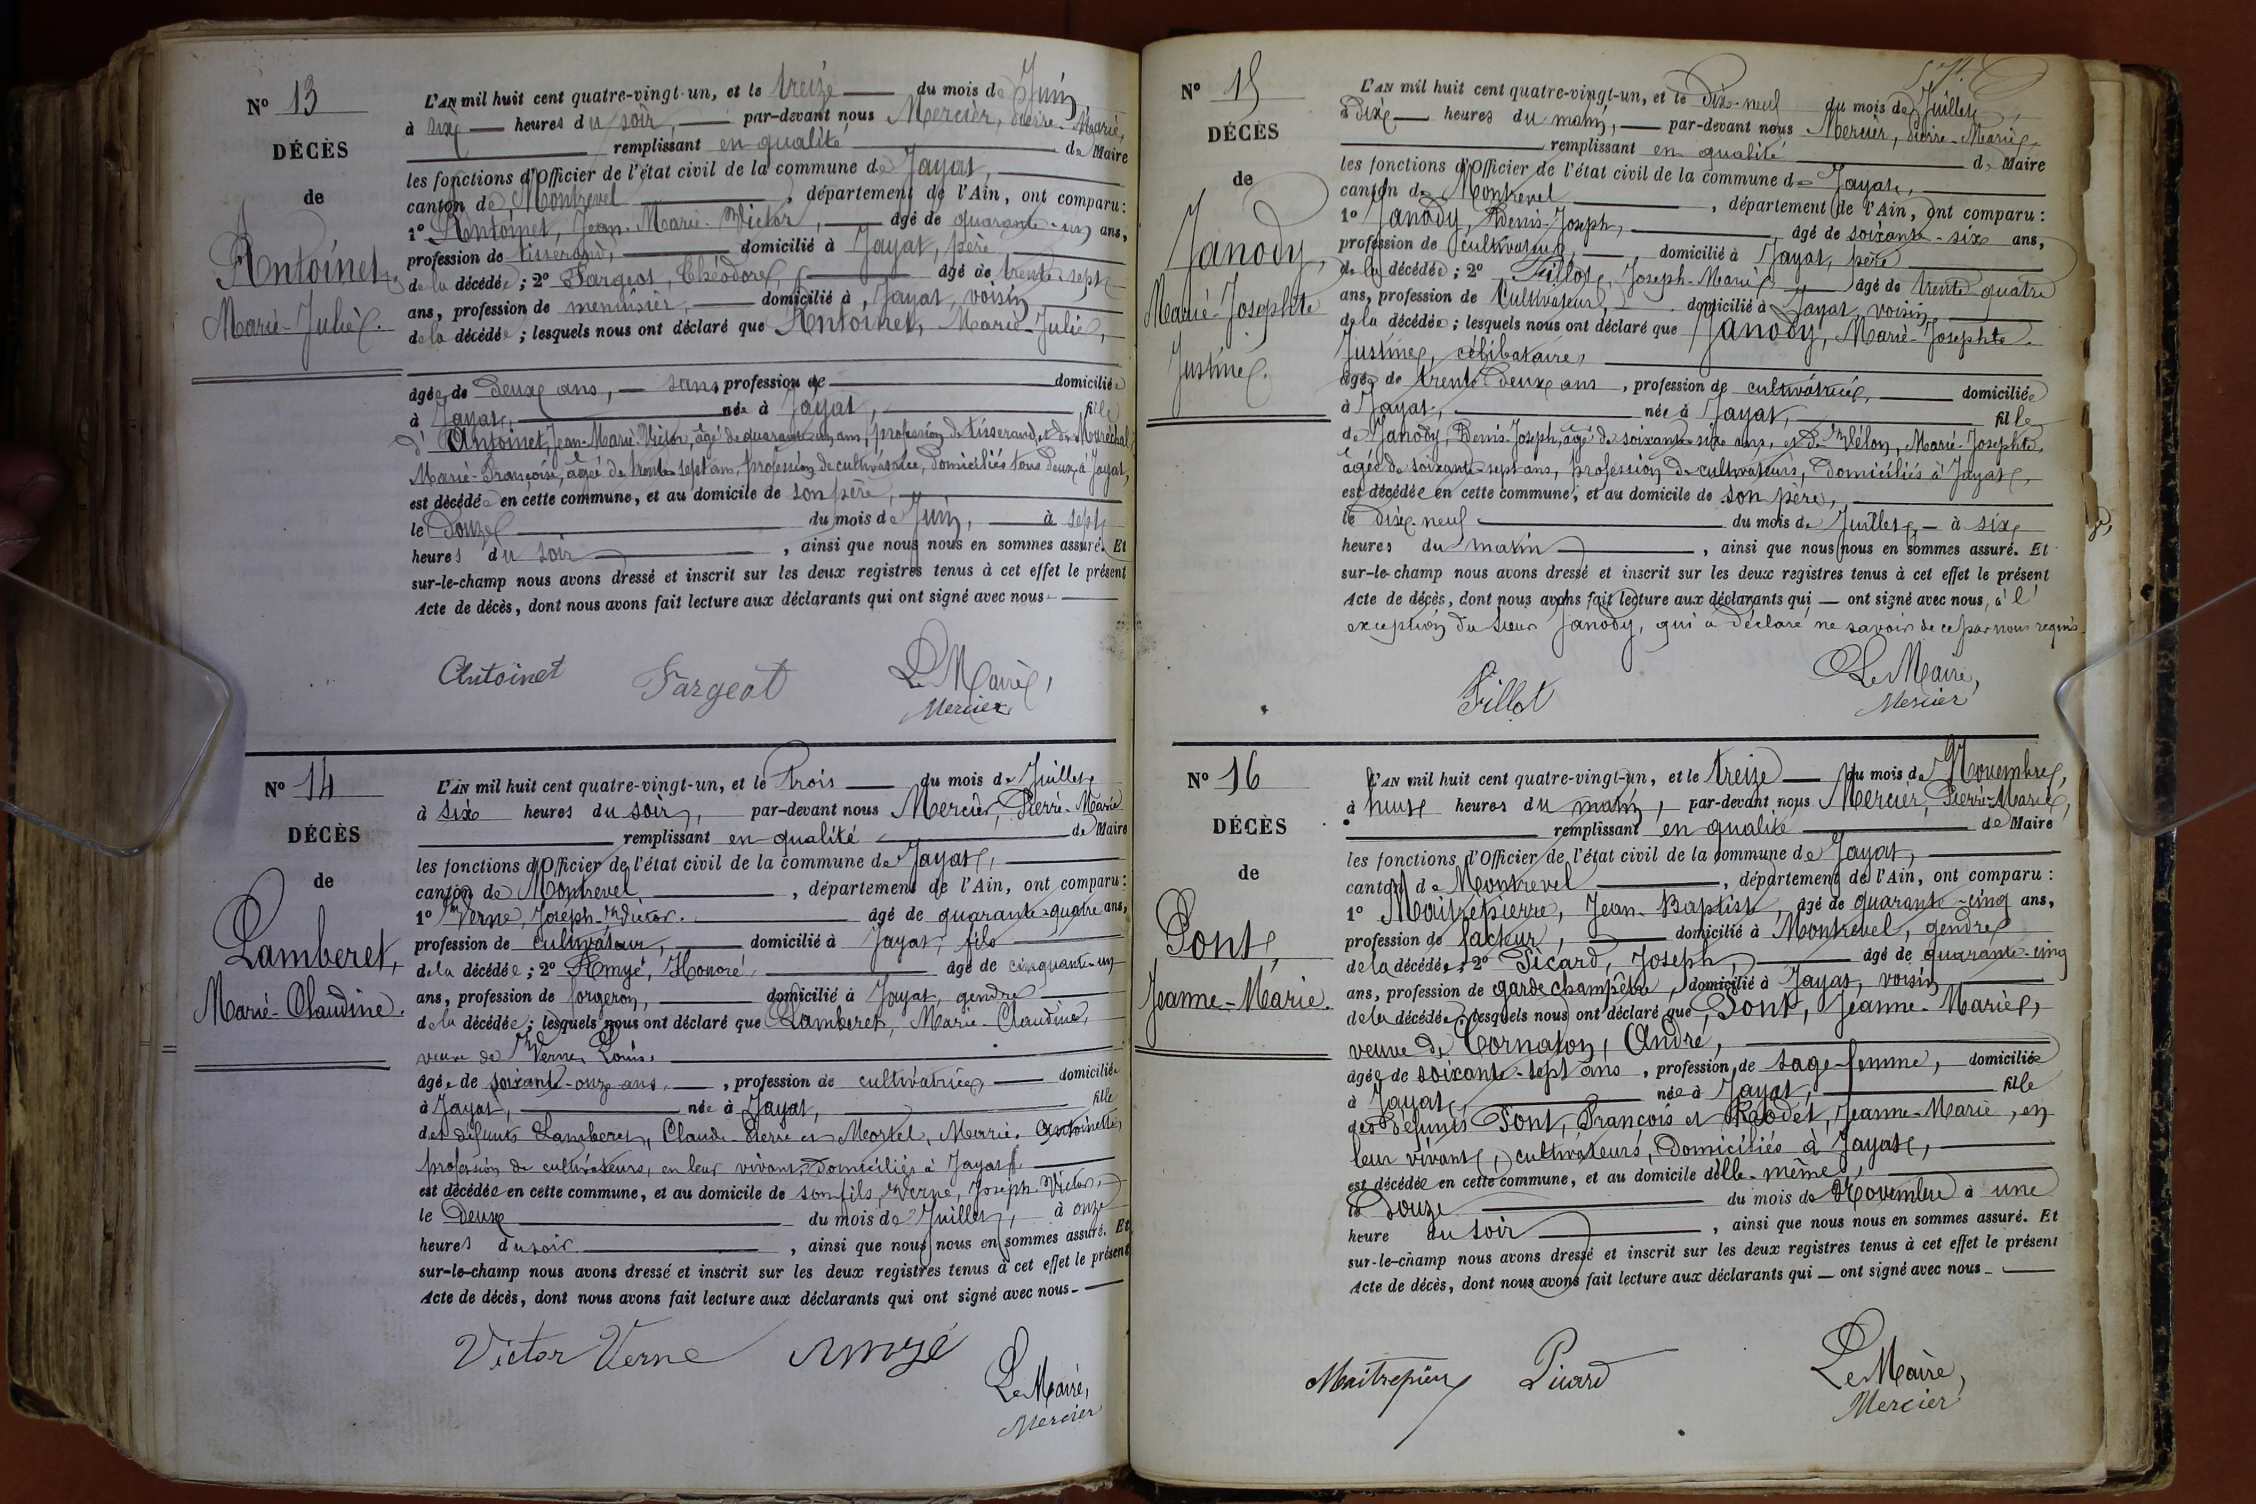 N° 13
DÉCÈS
de
Antoinet,
Marie-Julie.
L'AN mil huit cent quatre-vingt-un, et le treize du mois de Juin
à six heures du soir, par-devant nous Mercier, Pierre-Marie,
remplissant en qualité de Maire
les fonctions d'Officier de l'état civil de la commune de Jayat,
canton de Montrevel, département de l'Ain, ont comparu:
1° Antoinet, Jean-Marie-Victor, âgé de quarante-un ans,
profession de tisserand, domicilié à Jayat, père
de la décédée; 2° Fargeot, Théodore, âgé de trente-sept
ans, profession de menuisier, domicilié à Jayat, voisin
de la décédée; lesquels nous ont déclaré que Antoinet, Marie-Julie,
âgée de deux ans, sans profession de domiciliée
à Jayat, née à Jayat, fille
d'Antoinet, Jean-Marie-Victor, âgé de quarante-un ans, profession de tisserand, et de Maréchal
Marie-Françoise, âgée de trente-sept ans, profession de cultivatrice, domiciliés tous deux à Jayat,
est décédée en cette commune, et au domicile de son père,
le douze du mois de Juin, à sept
heures du soir, ainsi que nous nous en sommes assuré. Et
sur-le-champ nous avons dressé et inscrit sur les deux registres tenus à cet effet le présent
Acte de décès, dont nous avons fait lecture aux déclarants qui ont signé avec nous
Antoinet Fargeot Le Maire,
Mercier
N° 14
DÉCÈS
de
Lamberet,
Marie-Claudine.
L'AN mil huit cent quatre-vingt-un, et le trois du mois de Juillet
à six heures du soir, par-devant nous Mercier, Pierre-Marie
remplissant en qualité de Maire
les fonctions d'Officier de l'état civil de la commune de Jayat,
canton de Montrevel, département de l'Ain, ont comparu:
1° Verne, Joseph-Victor. âgé de quarante-quatre ans,
profession de cultivateur, domicilié à Jayat, fils
de la décédée; 2° Amyé, Honoré, âgé de cinquante-un
ans, profession de forgeron, domicilié à Jayat, gendre
de la décédée; lesquels nous ont déclaré que Lamberet, Marie-Claudine,
veuve de Verne, Louis,
âgée de soixante-onze ans, profession de cultivatrice, domiciliée
à Jayat, née à Jayat, fille
des défunts Lamberet, Claude-Pierre et Mortel, Marie-Antoinette,
profession de cultivateurs, en leur vivant, domiciliés à Jayat,
est décédée en cette commune, et au domicile de son fils, Verne, Joseph-Victor,
le deux du mois de Juillet, à onze
heures du soir, ainsi que nous nous en sommes assuré. Et
sur-le-champ nous avons dressé et inscrit sur les deux registres tenus à cet effet le présent
Acte de décès, dont nous avons fait lecture aux déclarants qui ont signé avec nous
Victor Verne Amyé Le Maire,
Mercier
N° 15
DÉCÈS
de
Janody,
Marie-Josephte
Justine.
L'AN mil huit cent quatre-vingt-un, et le dix-neuf du mois de Juillet,
à dix heures du matin, par-devant nous Mercier, Pierre-Marie,
remplissant en qualité de Maire
les fonctions d'Officier de l'état civil de la commune de Jayat,
canton de Montrevel, département de l'Ain, ont comparu:
1° Janody, Denis-Joseph, âgé de soixante-six ans,
profession de cultivateur, domicilié à Jayat, père
de la décédée; 2° Fillot, Joseph-Marie, âgé de trente quatre
ans, profession de Cultivateur, domicilié à Jayat, voisin
de la décédée; lesquels nous ont déclaré que Janody, Marie-Josephte-
Justine, célibataire,
âgée de trente-deux ans, profession de cultivatrice, domiciliée
à Jayat, née à Jayat, fille
de Janody, Denis-Joseph, âgé de soixante-six ans, et de Velon, Marie-Josephte,
âgée de soixante-sept ans, profession de cultivateurs, domiciliés à Jayat,
est décédée en cette commune, et au domicile de son père,
le dix-neuf du mois de Juillet, à six
heures du matin, ainsi que nous nous en sommes assuré. Et
sur-le-champ nous avons dressé et inscrit sur les deux registres tenus à cet effet le présent
Acte de décès, dont nous avons fait lecture aux déclarants qui ont signé avec nous, à l'
exception du sieur Janody, qui a déclaré ne savoir de ce par nous requis.
Fillot Le Maire,
Mercier
N° 16
DÉCÈS
de
Pont,
Jeanne-Marie.
L'AN mil huit cent quatre-vingt-un, et le treize du mois de Novembre,
à huit heures du matin, par-devant nous Mercier, Pierre-Marie,
remplissant en qualité de Maire
les fonctions d'Officier de l'état civil de la commune de Jayat,
canton de Montrevel, département de l'Ain, ont comparu:
1° Maitrepierre, Jean-Baptiste, âgé de quarante-cinq ans,
profession de facteur, domicilié à Montrevel, gendre
de la décédée; 2° Picard, Joseph, âgé de quarante-cinq
ans, profession de garde champêtre, domicilié à Jayat, voisin
de la décédée; lesquels nous ont déclaré que Pont, Jeanne-Marie,
veuve de Cornaton, André,
âgée de soixante-sept ans, profession de sage-femme, domiciliée
à Jayat, née à Jayat, fille
des défunts Pont, François et Jeanne-Marie, en
leur vivant, cultivateurs, domiciliés à Jayat,
est décédée en cette commune, et au domicile d'elle-même,
le douze du mois de Novembre à une
heure du soir, ainsi que nous nous en sommes assuré. Et
sur-le-champ nous avons dressé et inscrit sur les deux registres tenus à cet effet le présent
Acte de décès, dont nous avons fait lecture aux déclarants qui ont signé avec nous
Maitrepierre Picard Le Maire,
Mercier